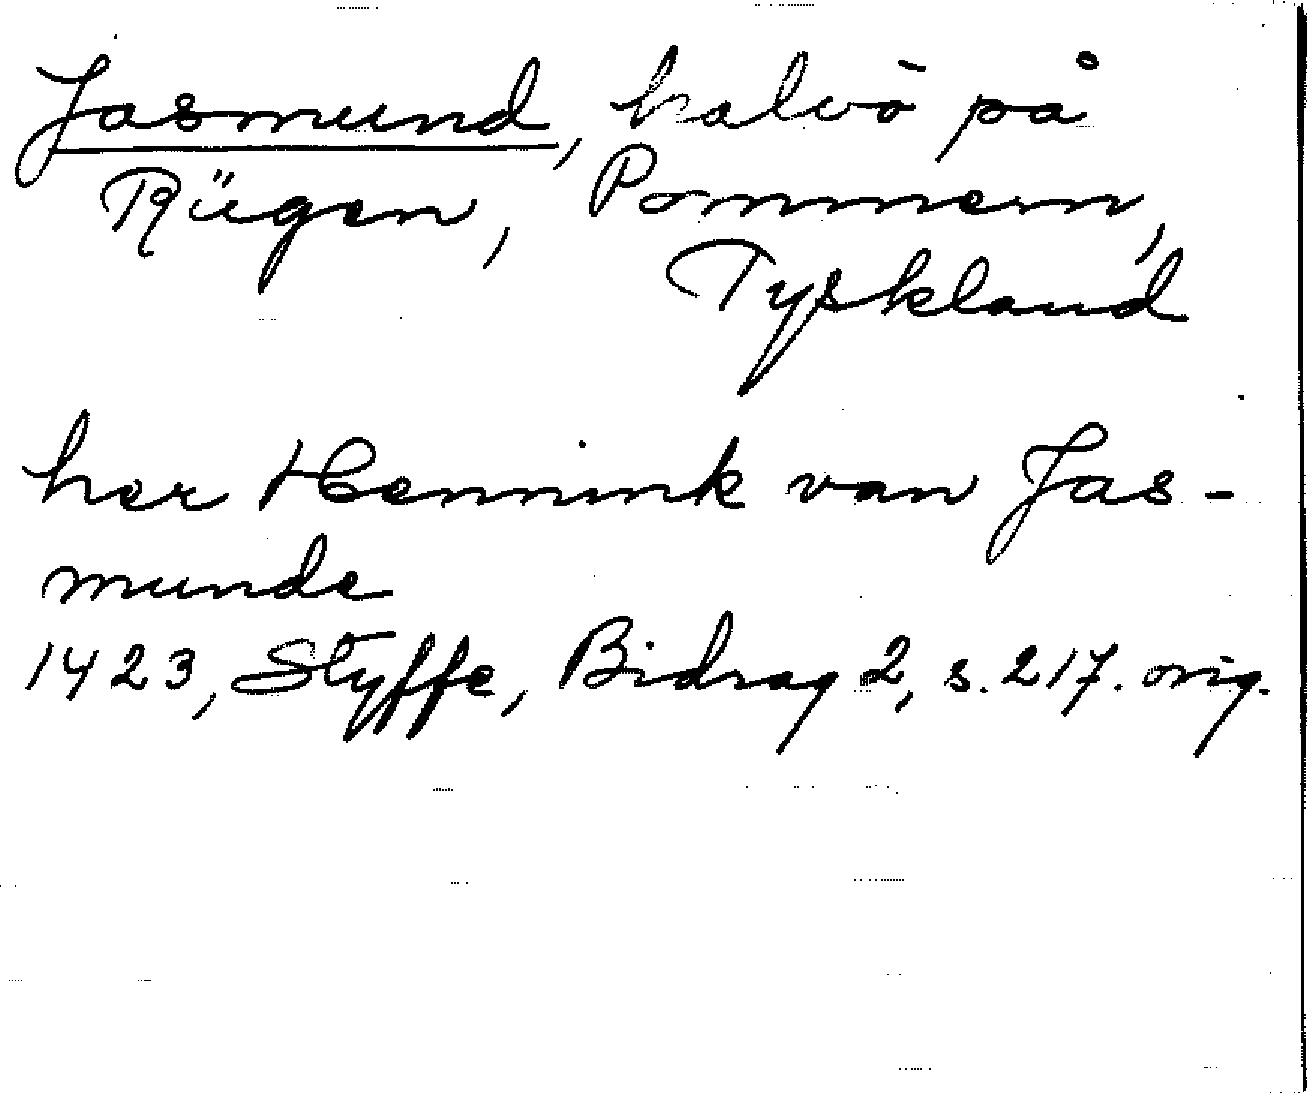 Jasmund, halvö på
Rügen, Pommern,
Tyskland
her Hennink van Jas-
munde
1423, Styffe, Bidrag 2, s. 217. orig.